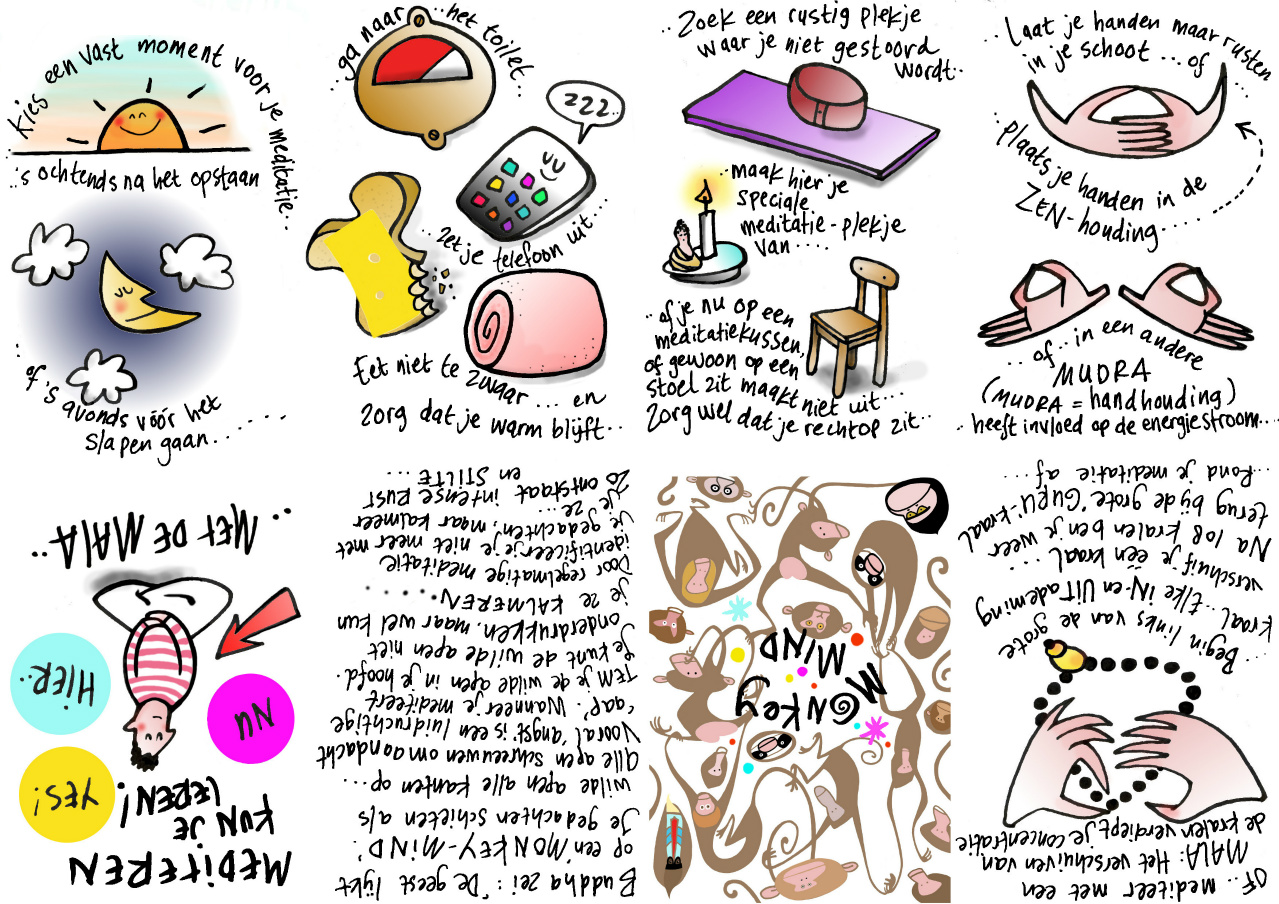 Kies een vast moment voor je meditatie..
..'s ochtends na het opstaan
..of 's avonds vóór het
slapen gaan......
..ga naar ..het toilet..
zzz..
..zet je telefoon uit....
Eet niet te zwaar ... en
zorg dat je warm blijft..
..Zoek een rustig plekje
waar je niet gestoord
wordt..
..maak hier je
speciale
meditatie-plekje
van ....
..of je nu op een
meditatiekussen,
of gewoon op een
stoel zit maakt niet uit...
Zorg wel dat je rechtop zit..
..Laat je handen maar rusten
in je schoot ... of
..plaats je handen in de
ZEN-houding....
... of .. in een andere
MUDRA
(MUDRA = handhouding)
..heeft invloed op de energiestroom...
MEDITEREN
KUN JE
LEREN!
YES!
NU
HIER..
..MET DE MALA..
Buddha zei: 'De geest lijkt
op een 'MONKEY-MIND'.
Je gedachten schieten als
wilde apen alle kanten op...
Alle apen schreeuwen om aandacht
Vooral 'angst' is een luidruchtige
'aap'. Wanneer je mediteert
TEM je de wilde apen in je hoofd.
Je kunt de wilde apen niet
onderdrukken, maar wel kun
je ze KALMEREN......
Door regelmatige meditatie
identificeer je je niet meer met
je gedachten, maar kalmeer
je ze...
Zo ontstaat intense RUST
en STILTE ...
MONKEY
MIND
OF.. mediteer met een
MALA: Het verschuiven van
de kralen verdiept je concentratie
..Begin links van de grote
kraal.. Elke IN-en UITademing
verschuif je één kraal ....
Na 108 kralen ben je weer
terug bij de grote 'GURU'-kraal
Rond je meditatie af ....